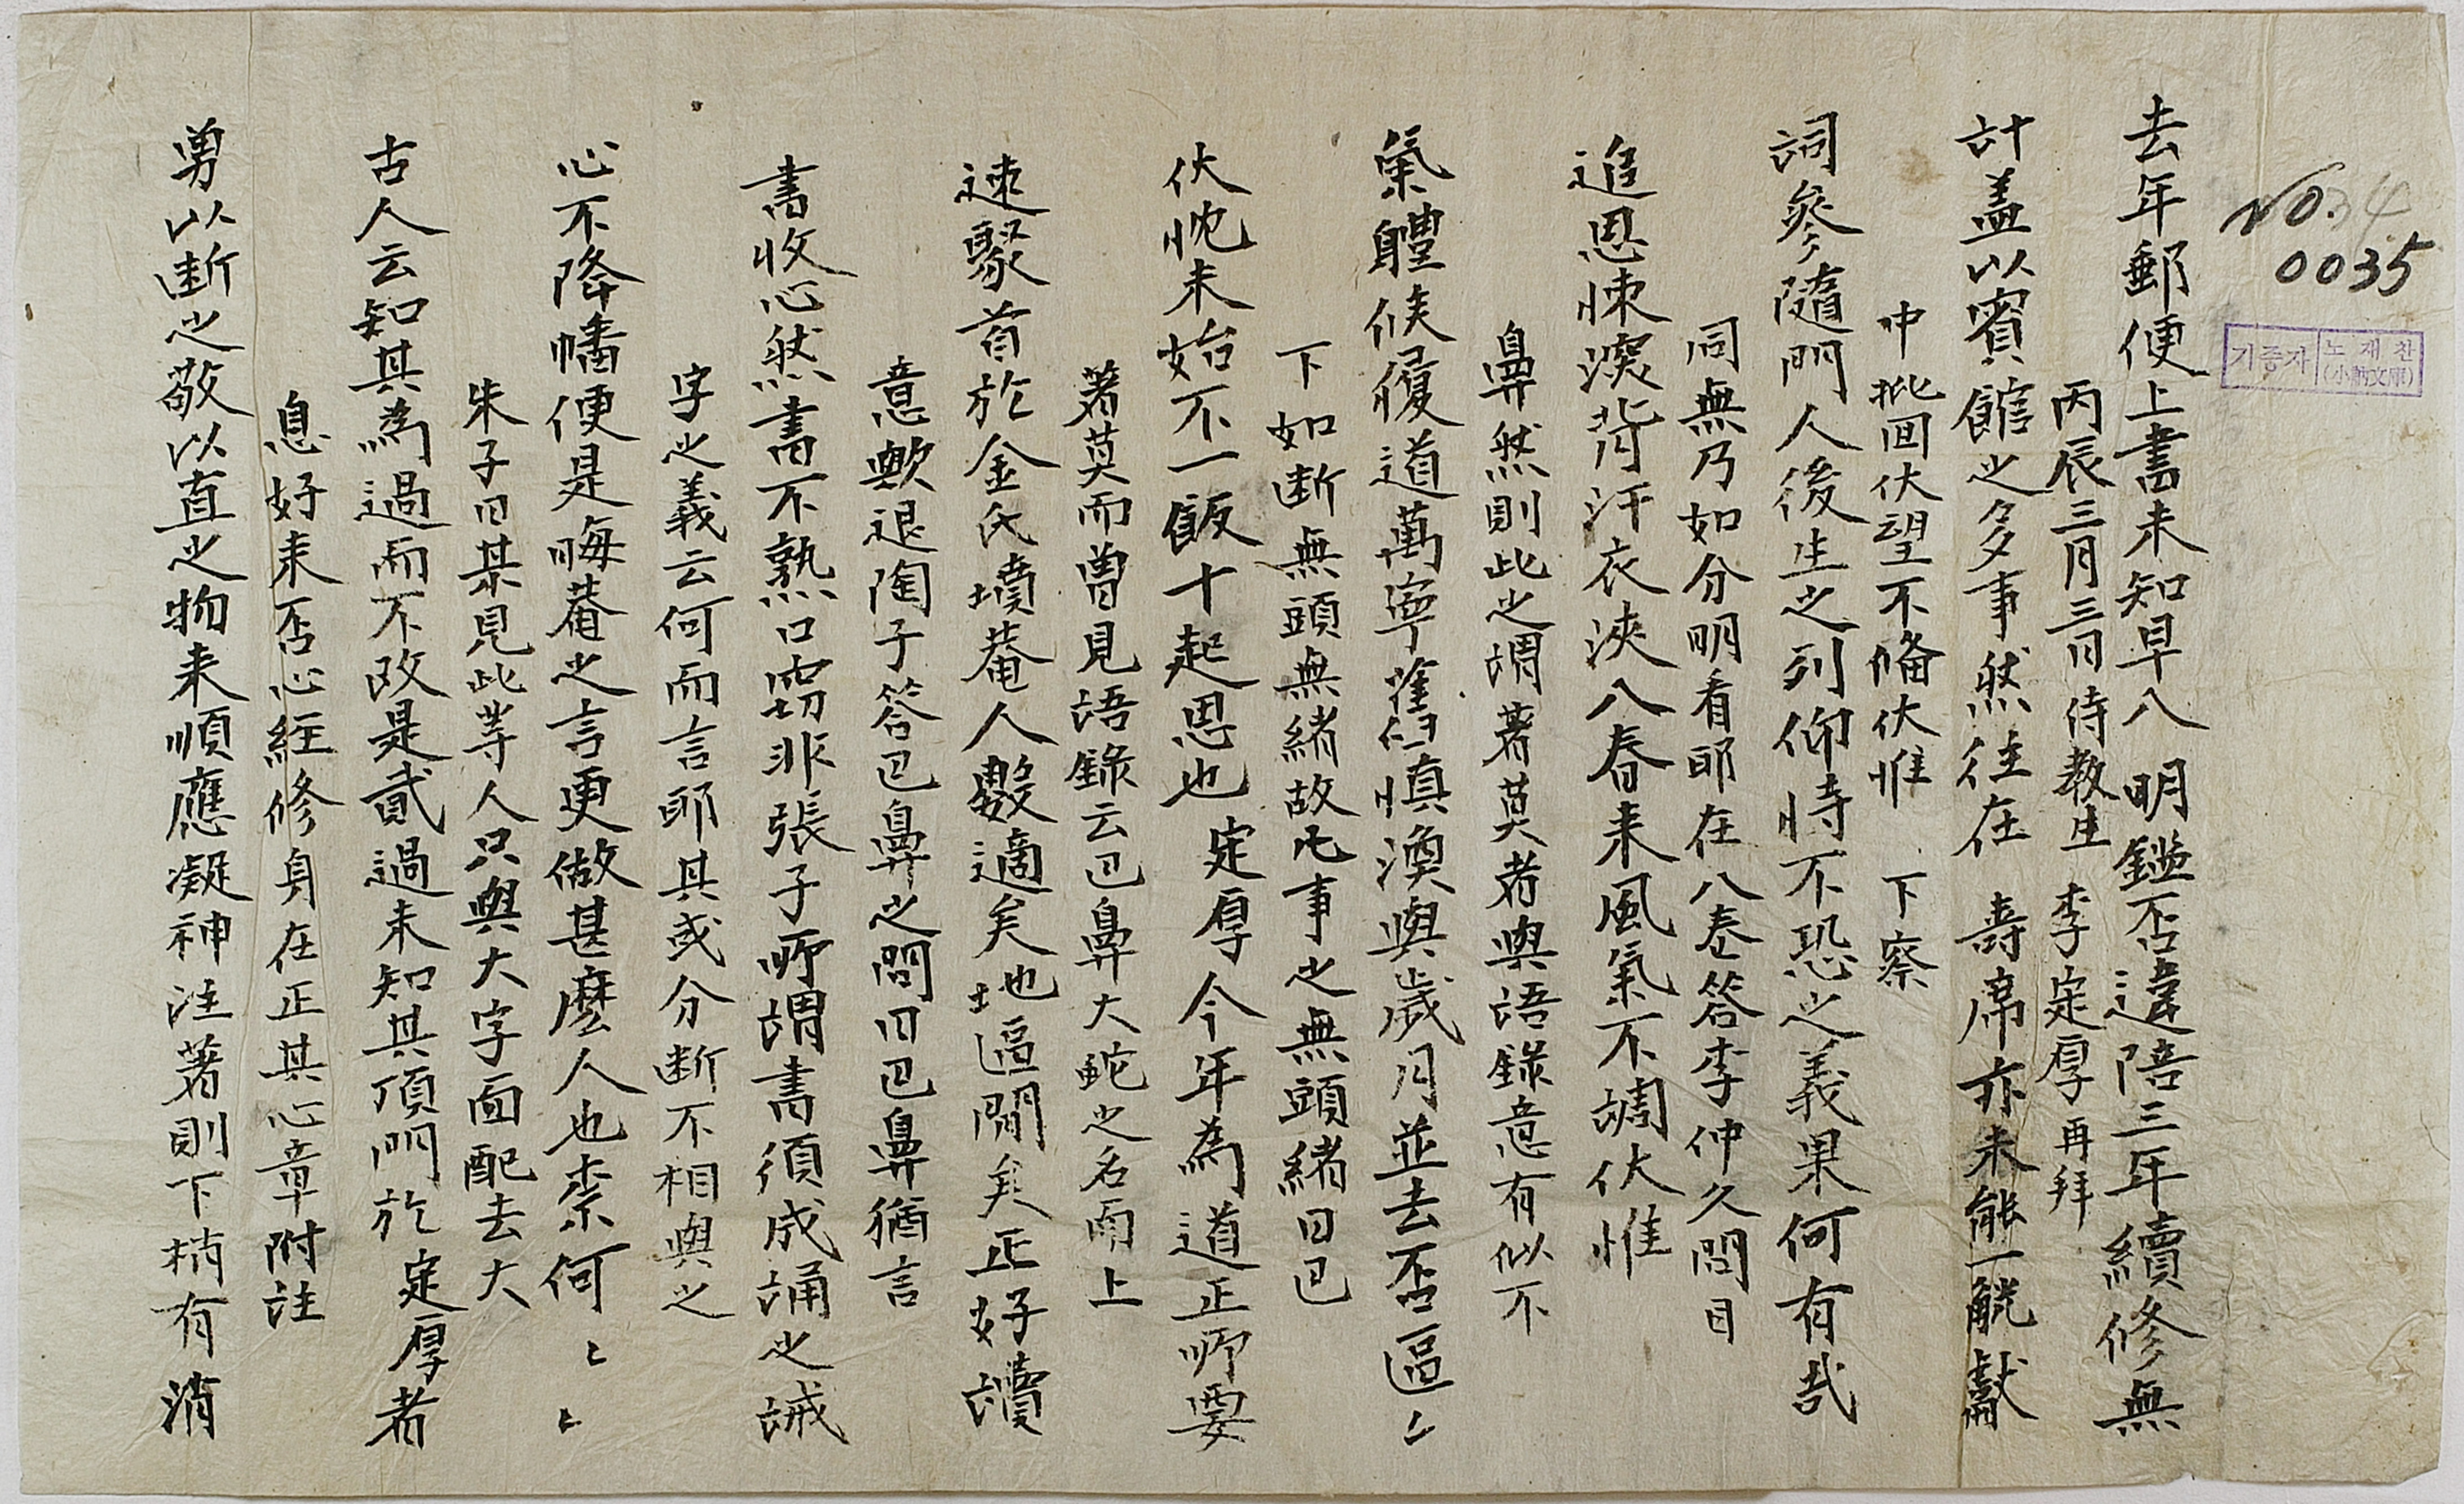 No. 34
0035
기증자 노재찬
(小訥文庫)
去年郵便上書未知早入 明鑑否違陪三年續修無
丙辰三月三日 侍教生 李定厚 再拜
計盖以賓館之多事然往在 壽席亦未能一觥獻
中批回伏望不俻伏惟 下察
詞參隨門人後生之列仰恃不恐之義果何有哉
同無乃如分明看耶在八卷答李仲久問目
追思悚澳背汗衣浹八春來風氣不調伏惟
鼻然則此之謂著莫者與語錄意有似不
氣體候履道萬寧舊愼渙與歲月並去否區〻
下如断無頭無緖故凡事之無頭緖曰巴
伏忱未始不一飯十起思也 定厚今年為道正所要
著莫而曾見語錄云巴鼻大蛇之名而上
速聚首於金氏墳菴人數適矣地區閒矣正好讀
意歟退陶子答巴鼻之問曰巴鼻猶言
書收心然書不熟口窃非張子所謂書須成誦之誡
字之義云何而言耶其或分断不相與之
心不降幡便是晦菴之言更做甚麽人也柰何〻〻
朱子曰某見此等人只與大字面配去大
古人云知其為過而不改是貳過未知其頂門於 定厚者
息好耒否心經修身在正其心章附註
勇以断之敬以直之物来順應凝神注著則下梢有消